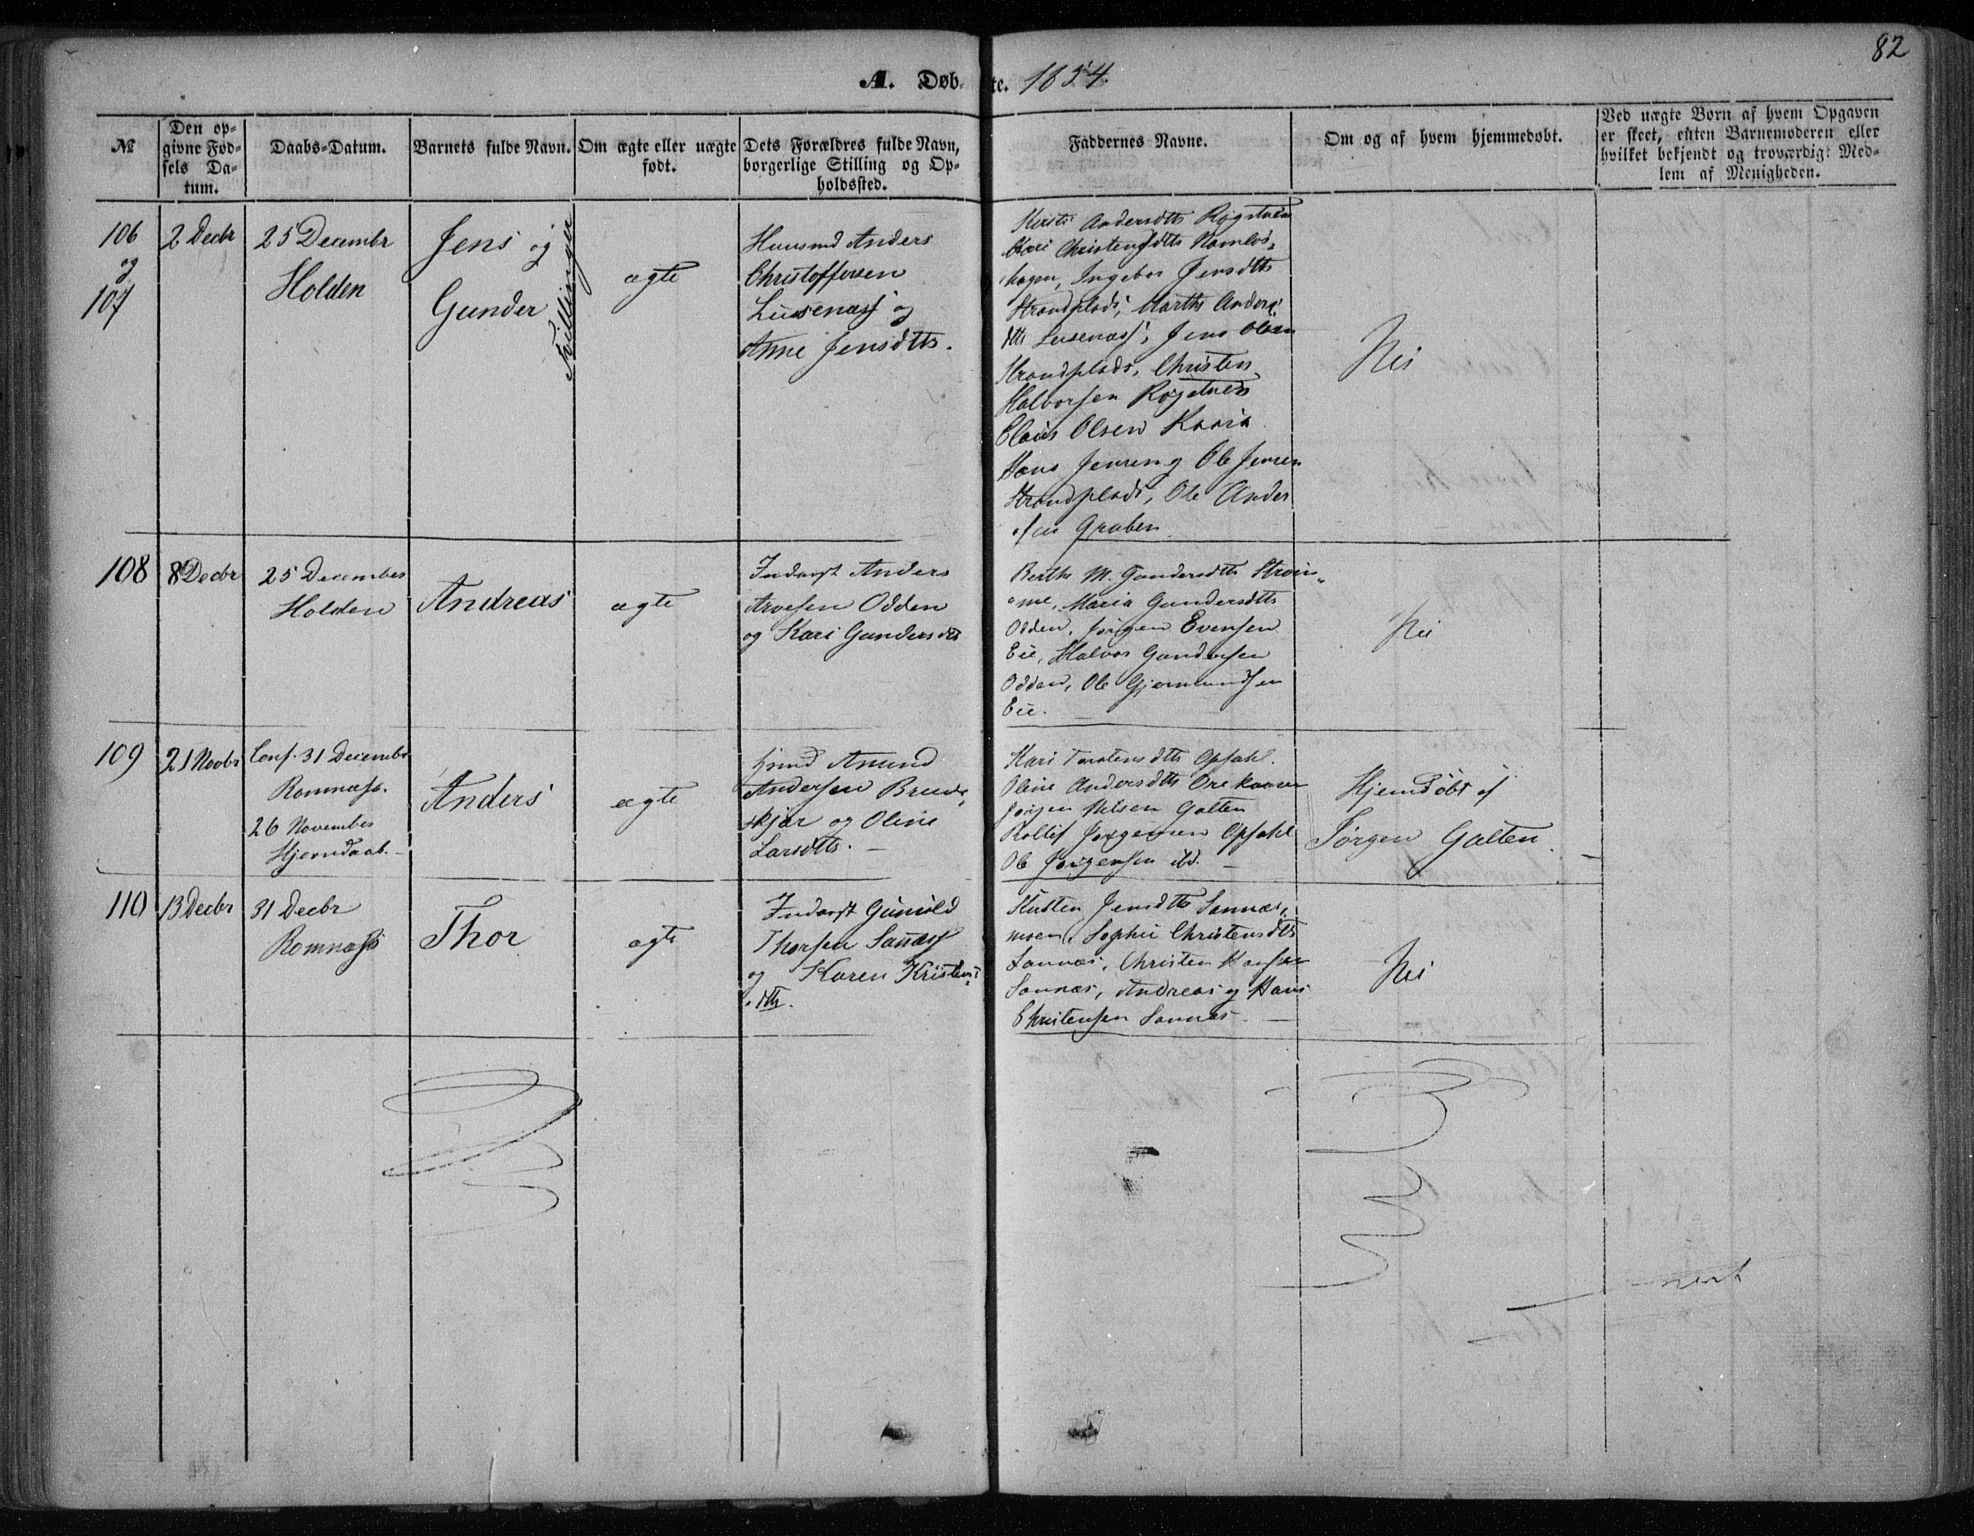 82
A. Døb- te. 1854.
№
Den op-
givne Fød-
sels Da-
tum.
Daabs-Datum.
Barnets fulde Navn.
Om ægte eller uægte
født.
Dets Forældres fulde Navn,
borgerlige Stilling og Op-
holdssted.
Faddernes Navne.
Om og af hvem hjemmedøbt.
Ved uægte Børn af hvem Opgaven
er skeet, enten Barnemoderen eller
hvilket bekjendt og troværdigt Med-
lem af Menigheden.
106
og
107
2 Decbr
25 Decembr
Holden
Jens og
Gunder
Tvillinger
ægte
Huusmd Anders
Christoffersen
Lusenæss og
Anne Jensdtts.
Kirsti Andersdtts
Christensdtts
Ingebor Jensdtts
Strandplads, Marthe Anders
dtts Lusenæss, Jens Olsen
Strandplads, Christen
Halvorsen
Claus Olsen
Hans Jensen og Ole Jensen
Strandplads, Ole Anders
sen Graben
Nei
108
8 Decbr
25 December
Holden
Andreas
ægte
Inderst Anders
Arvesen Odden
og Kari Gundersdtt
Berthe M. Gundersdtts
Maria Gundersdtts
Odden, Jørgen Evensen
Eie, Halvor Gundersen
Odden, Ole Gjermundsen
Eie.
Nei
109
21 Novbr
Conf. 31 Decembr
Romnæss.
26 November
Hjemdaab.
Anders
ægte
Amund
Andersen
kjær og Oline
Larsdtts.
Kari Torstensdtts Opsahl.
Oline Andersdtts
Jørgen Nilsen Galten
Rollef Jørgensen Opsahl
Ole Jørgensen ibd.
Hjemdøbt af
Jørgen Galten.
110
13 Decbr
31 Decbr
Romnæss
Thor
ægte
Inderst Gunuld
Thorsen Sannæss
og Karen Kristens
dtt.
Kirsten Jensdtts Sannæs-
moen, Sophie Christensdtts
Sannæs, Christen Hansen
Sannæs, Andreas og Hans
Christensen Sannæs.
Nei